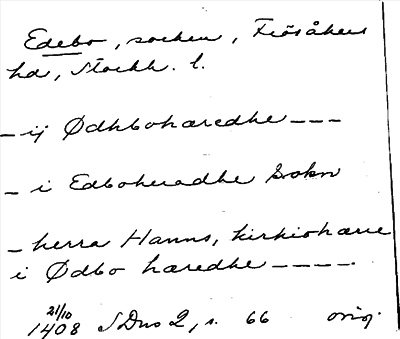 Edebo, socken, Frösåkers
hd, Stockh. l.
– ij Ødhboharedhe – – –
– i Edboheradhe Sokn
– herra Hanns, kirkiohærre
i Ødbo haredhe – – – –.
21/10
1408 SDns 2, s. 66 orig.